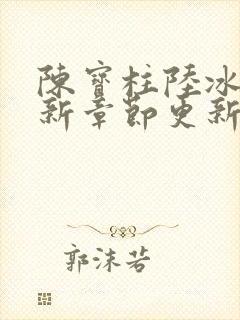 陳寶柱陸冰
新章節更新
郭沫若